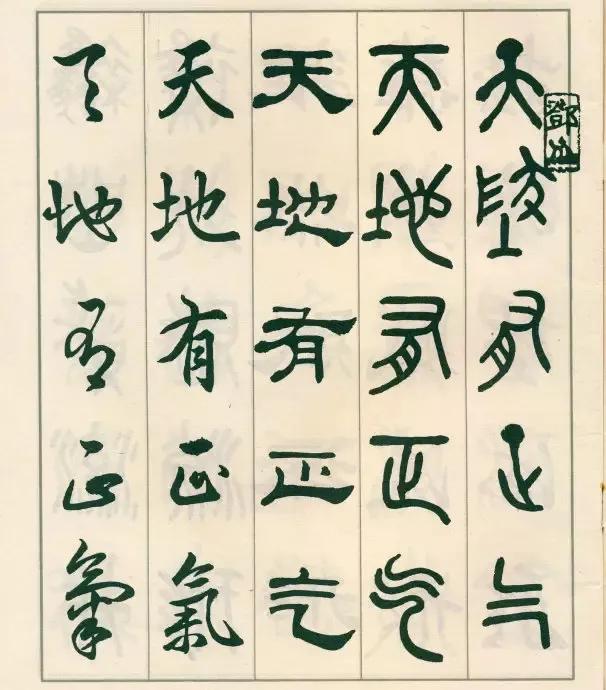 天墬有正气
天地有正气
天地有正气
天地有正氣
天地有正氣